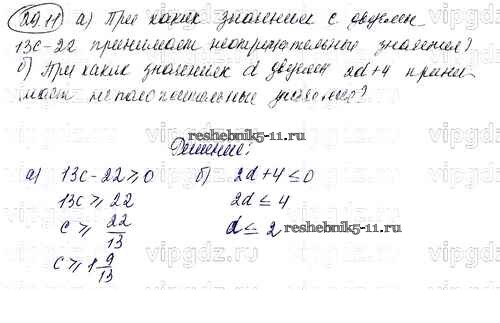 29.11 а) При каких значениях с двучлен
13с-22 принимает неотрицательные значения?
б) При каких значениях d двучлен 2d+4 прини-
мает неположительные значения?
reshebnik5-11.ru
Решение:
а) 13с-22≥0 б) 2d+4≤0
13с≥22 2d≤4
с≥22/13 d≤2
reshebnik5-11.ru
с≥1 9/13